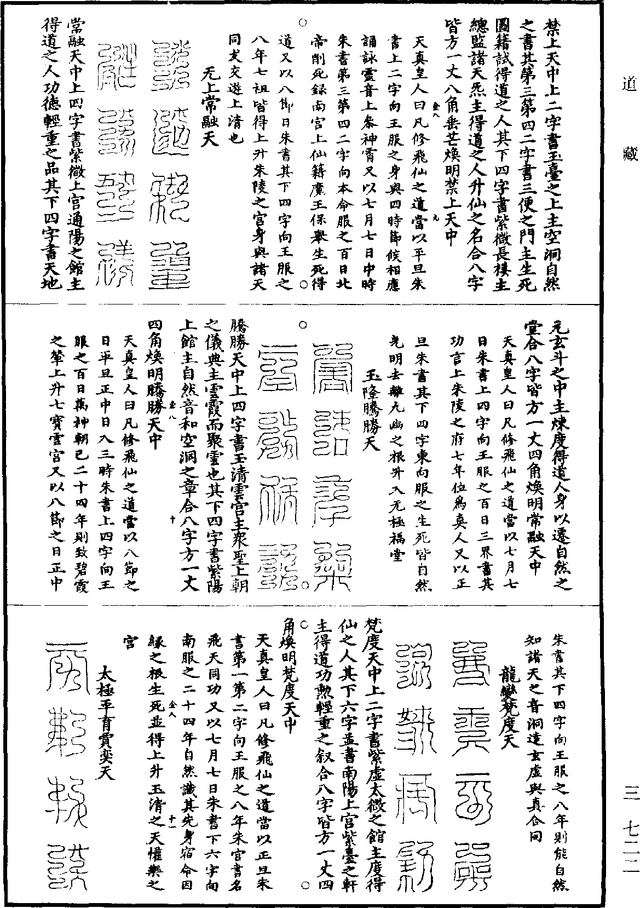 道藏
禁上天中上二字書玉臺之上主空洞自然
之書其第三第四二字書三便之門主生死
圖籍試得道之人其下四字書紫微長樓主
總監諸天炁主得道之人升仙之名合八字
皆方一丈八角垂芒煥明禁上天中
天真皇人曰凡修飛仙之道當以平旦朱
書上二字向王服之身與四時節候相應
誦詠靈音上參神霄又以七月七日中時
朱書第三第四二字向本命服之百日北
帝削死錄南宮上仙籍魔王保舉生死得
道又以八節日朱書其下四字向王服之
八年七祖皆得上升朱陵之宮身與諸天
同炁交遊上清也
无上常融天
常融天中上四字書紫微上宮通陽之館主
得道之人功德輕重之品其下四字書天地
元玄斗之中主煉度得道人身以還自然之
堂合八字皆方一丈四角煥明常融天中
天真皇人曰凡修飛仙之道當以七月七
日朱書上四字向王服之百日三界書其
功言上朱陵之府七年位為真人又以正
旦朱書其下四字東向服之生死皆自然
光明去離九幽之根升入无極福堂
玉隆騰勝天
騰勝天中上四字書玉清雲宮主眾聖上朝
之儀典主雲霞而聚靈也其下四字書紫陽
上館主自然音和空洞之章合八字方一丈
四角煥明騰勝天中
天真皇人曰凡修飛仙之道當以八節之
日平旦正中日入三時朱書上四字向王
服之百日萬神朝已二十四年則致碧霞
之輦上升七寶雲宮又以八節之日正中
朱書其下四字向王服之八年則能自然
知諸天之音洞達玄虛與真合同
龍變梵度天
梵度天中上二字書紫虛太微之館主度得
仙之人其下六字並書南陽上宮紫臺之軒
主得道功勲輕重之叙合八字皆方一丈四
角煥明梵度天中
天真皇人曰凡修飛仙之道當以正旦朱
書第一第二字向王服之八年朱官書名
飛天同功又以七月七日朱書下六字向
南服之二十四年自然識其先身宿命因
緣之根生死並得上升玉清之天懽樂之
宮
太極平育賈奕天
三 七二二